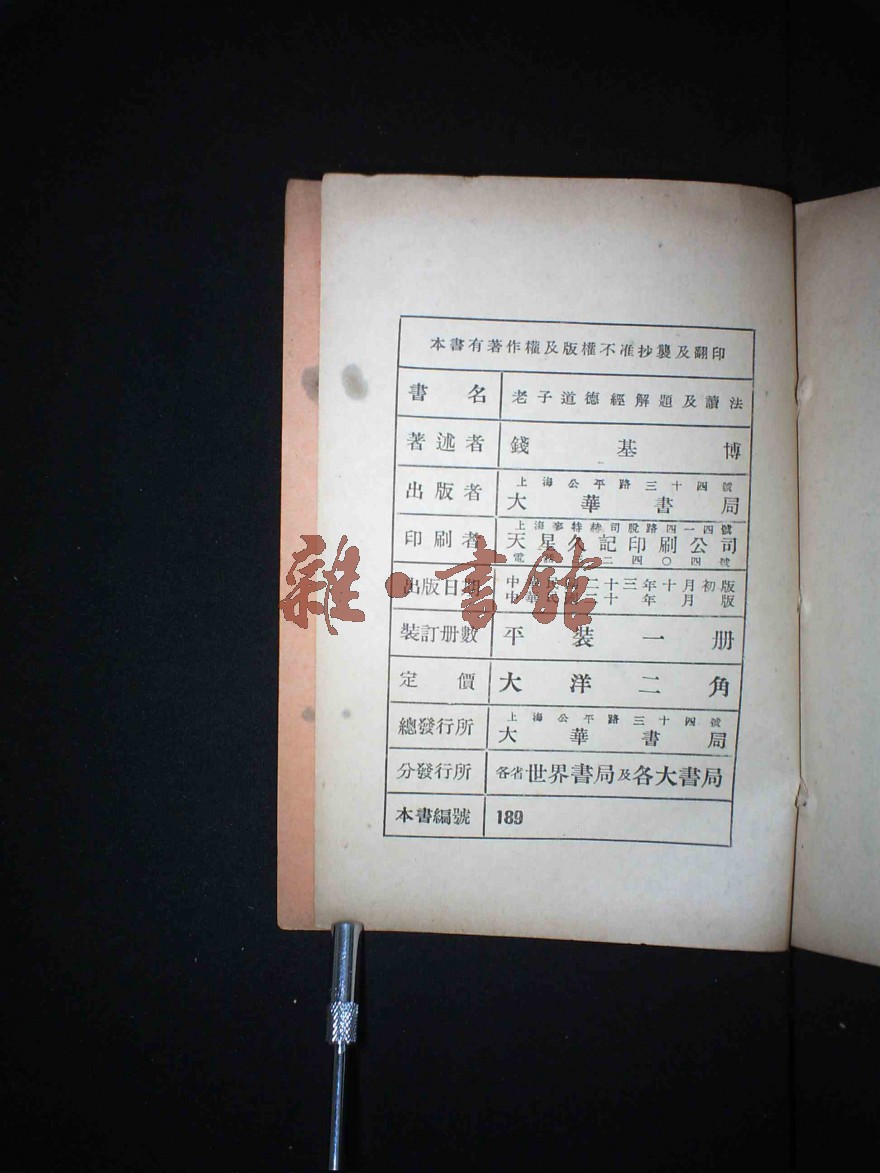 本書有著作權及版權不准抄襲及翻印
書名 老子道德經解題及讀法
著述者 錢基博
出版者 上海公平路三十四號
大華書局
印刷者 上海麥特赫司脫路四一四號
天星久記印刷公司
電話二四〇四號
出版日期 中華民國二十三年十月初版
中華民國三十年 月 版
裝訂册數 平裝一册
定價 大洋二角
總發行所 上海公平路三十四號
大華書局
分發行所 各省世界書局及各大書局
本書編號 189
雜·書館